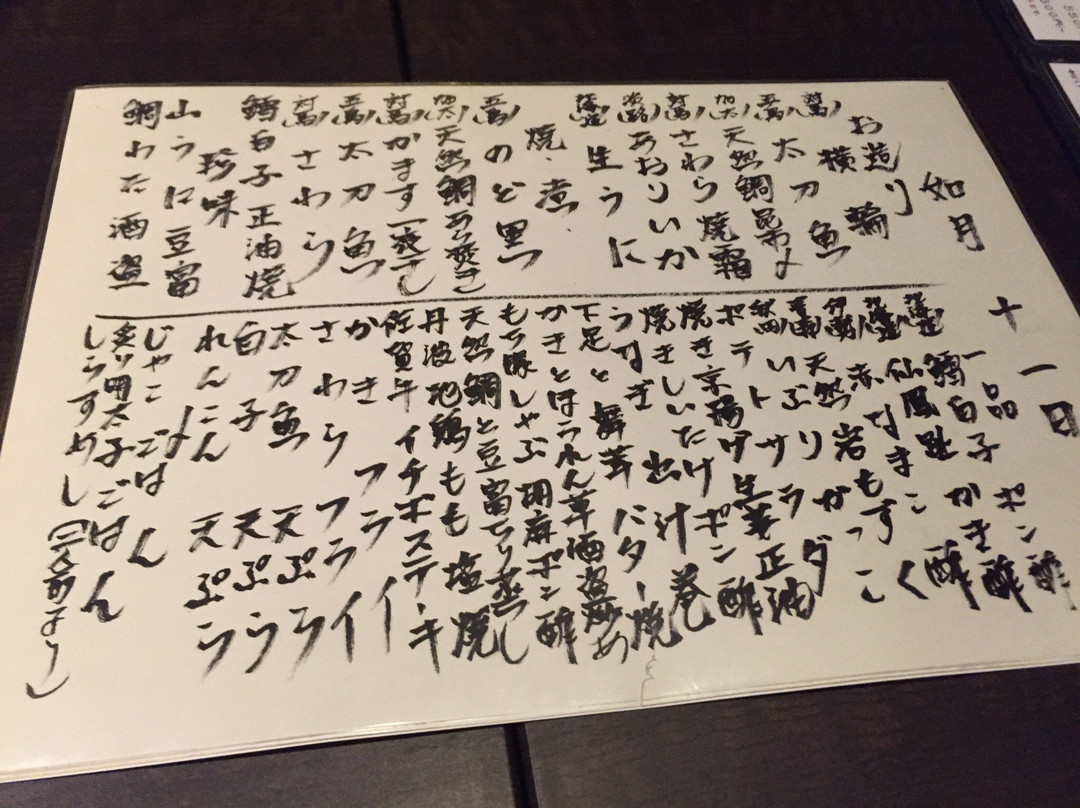 如月
十一日
お造り
対馬 横輪
五島 太刀魚
加太 天然鯛昆布〆
対馬 さわら焼霜
淡路 あおりいか
生うに
焼・煮
五島 のど黒
加太 天然鯛あら焚き
対馬 かます一夜干し
五島 太刀魚
対馬 さわら
鱈白子正油焼
珍味
山うに豆富
鯛わた酒盗
一品
鱈白子ポン酢
仙鳳趾かき酢
赤なまこ酢
天然岩もずく
秋田 いぶりがっこ
ポテトサラダ
焼き京揚げ生姜正油
焼きしいたけポン酢
うなぎ出汁巻
下足と舞茸バター焼
かきとほうれん草酒盗炒め
もち豚しゃぶ胡麻ポン酢
天然鯛と豆富ちり蒸し
丹波地鶏もも塩焼
佐賀牛イチボステーキ
かきフライ
さわらフライ
太刀魚天ぷら
白子天ぷら
れんこん天ぷら
〆
じゃこごはん
炙り明太子ごはん
しらすめし(二人前より)